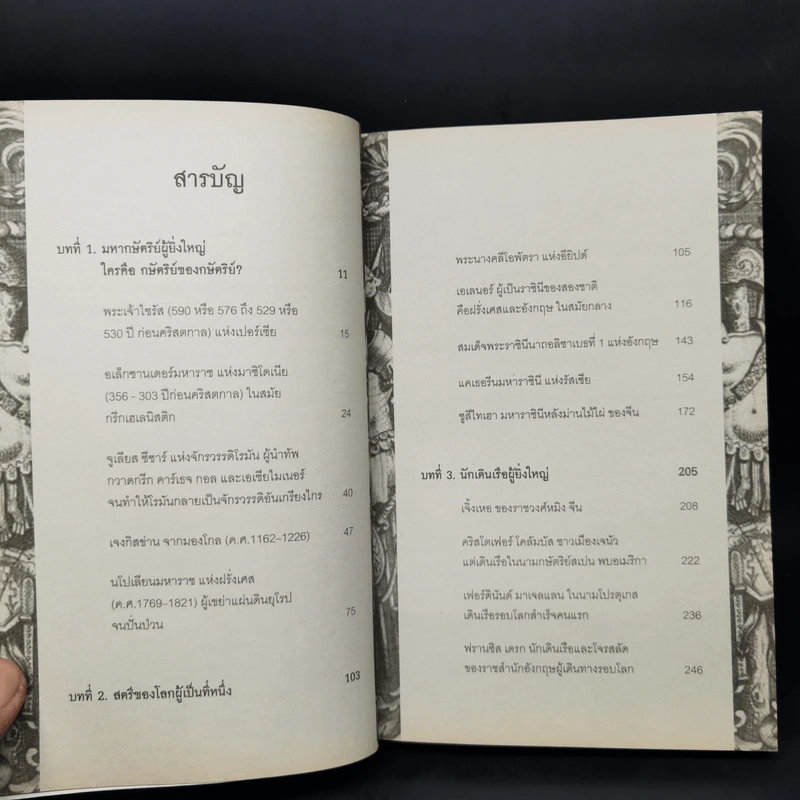 สารบัญ
บทที่ 1. มหากษัตริย์ผู้ยิ่งใหญ่
ใครคือ กษัตริย์ของกษัตริย์? 11
พระเจ้าไซรัส (590 หรือ 576 ถึง 529 หรือ
530 ปี ก่อนคริสตกาล) แห่งเปอร์เซีย 15
อเล็กซานเดอร์มหาราช แห่งมาซิโดเนีย
(356 - 303 ปีก่อนคริสตกาล) ในสมัย
กรีกเฮเลนิสติก 24
จูเลียส ซีซาร์ แห่งจักรวรรดิโรมัน ผู้นำทัพ
กวาดกรีก คาร์เธจ กอล และเอเซียไมเนอร์
จนทำให้โรมันกลายเป็นจักรวรรดิอันเกรียงไกร 40
เจงกิสข่าน จากมองโกล (ค.ศ.1162–1226) 47
นโปเลียนมหาราช แห่งฝรั่งเศส
(ค.ศ.1769–1821) ผู้เขย่าแผ่นดินยุโรป
จนปั่นป่วน 75
บทที่ 2. สตรีของโลกผู้เป็นที่หนึ่ง 103
พระนางคลีโอพัตรา แห่งอียิปต์ 105
เอเลนอร์ ผู้เป็นราชินีของสองชาติ
คือฝรั่งเศสและอังกฤษ ในสมัยกลาง 116
สมเด็จพระราชินีนาถอลิซาเบธที่ 1 แห่งอังกฤษ 143
แคเธอรีนมหาราชินี แห่งรัสเซีย 154
ซูสีไทเฮา มหาราชินีหลังม่านไม้ไผ่ ของจีน 172
บทที่ 3. นักเดินเรือผู้ยิ่งใหญ่ 205
เจิ้งเหอ ของราชวงศ์หมิง จีน 208
คริสโตเฟอร์ โคลัมบัส ชาวเมืองเจนัว
แต่เดินเรือในนามกษัตริย์สเปน พบอเมริกา 222
เฟอร์ดินันด์ มาเจลแลน ในนามโปรตุเกส
เดินเรือรอบโลกสำเร็จคนแรก 236
ฟรานซิส เดรก นักเดินเรือและโจรสลัด
ของราชสำนักอังกฤษผู้เดินทางรอบโลก 246